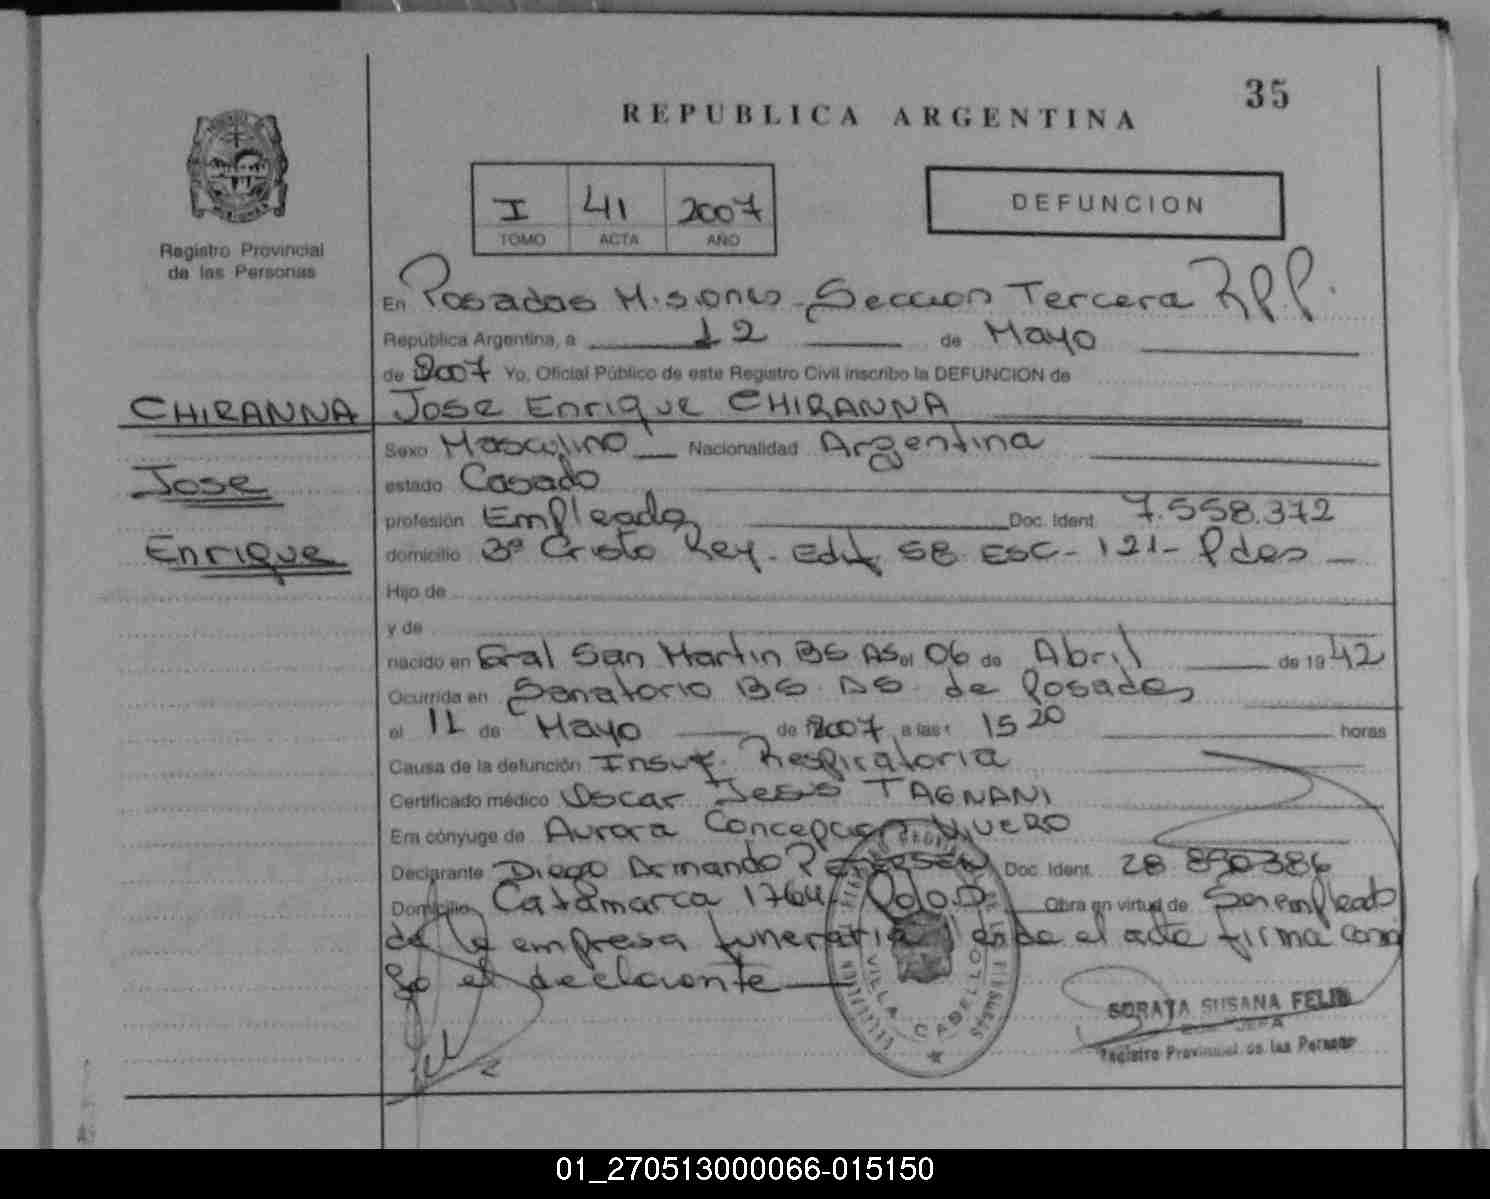 35
REPUBLICA ARGENTINA
I 41 2007
TOMO ACTA AÑO
DEFUNCION
Registro Provincial
de las Personas
En Posadas Misiones Seccion Tercera R.P.P.
República Argentina, a 12 de Mayo
de 2007 Yo, Oficial Público de este Registro Civil inscribo la DEFUNCION de
CHIRANNA Jose Enrique CHIRANNA
Sexo Masculino Nacionalidad Argentina
Jose
estado Casado
profesión Empleado Doc. Ident. 7.558.372
Enrique
domicilio 3º Cristo Rey - Edif 58 ESC - 121 - Pdas
Hijo de
y de
nacido en Gral San Martin BS AS el 06 de Abril de 1942
Ocurrida en Sanatorio BS. AS. de Posadas
el 11 de Mayo de 2007 a las 15 20 horas
Causa de la defunción Insuf. Respiratoria
Certificado médico Oscar Jesus TAGNANI
Era cónyuge de Aurora Concepcion VIVERO
Declarante Diego Armando Doc. Ident. 28.890.386
Domicilio Catamarca 1764 Obra en virtud de Ser empleado
de la empresa funeraria el acta firma conmi
go el declarante
VILLA CABELLO
SORAYA SUSANA FELIP
JEFA
Registro Provincial de las Personas
01_270513000066-015150